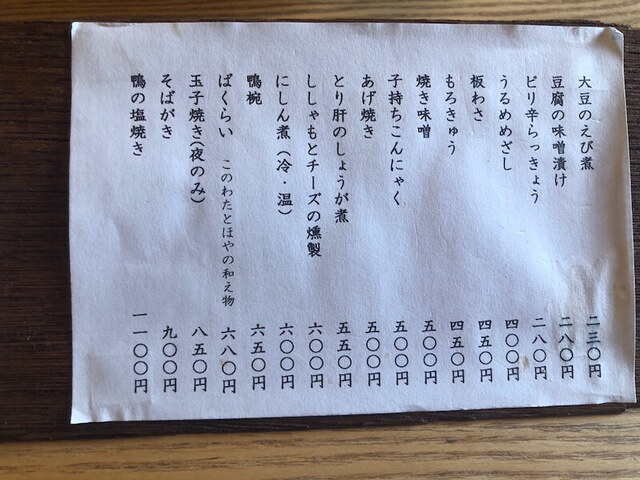 大豆のえび煮 二三〇円
豆腐の味噌漬け 二八〇円
ピリ辛らっきょう 二八〇円
うるめめざし 四〇〇円
板わさ 四五〇円
もろきゅう 四五〇円
焼き味噌 五〇〇円
子持ちこんにゃく 五〇〇円
あげ焼き 五〇〇円
とり肝のしょうが煮 五五〇円
ししゃもとチーズの燻製 六〇〇円
にしん煮（冷・温） 六〇〇円
鴨椀 六五〇円
ばくらい このわたとほやの和え物 六八〇円
玉子焼き（夜のみ） 八五〇円
そばがき 九〇〇円
鴨の塩焼き 一一〇〇円